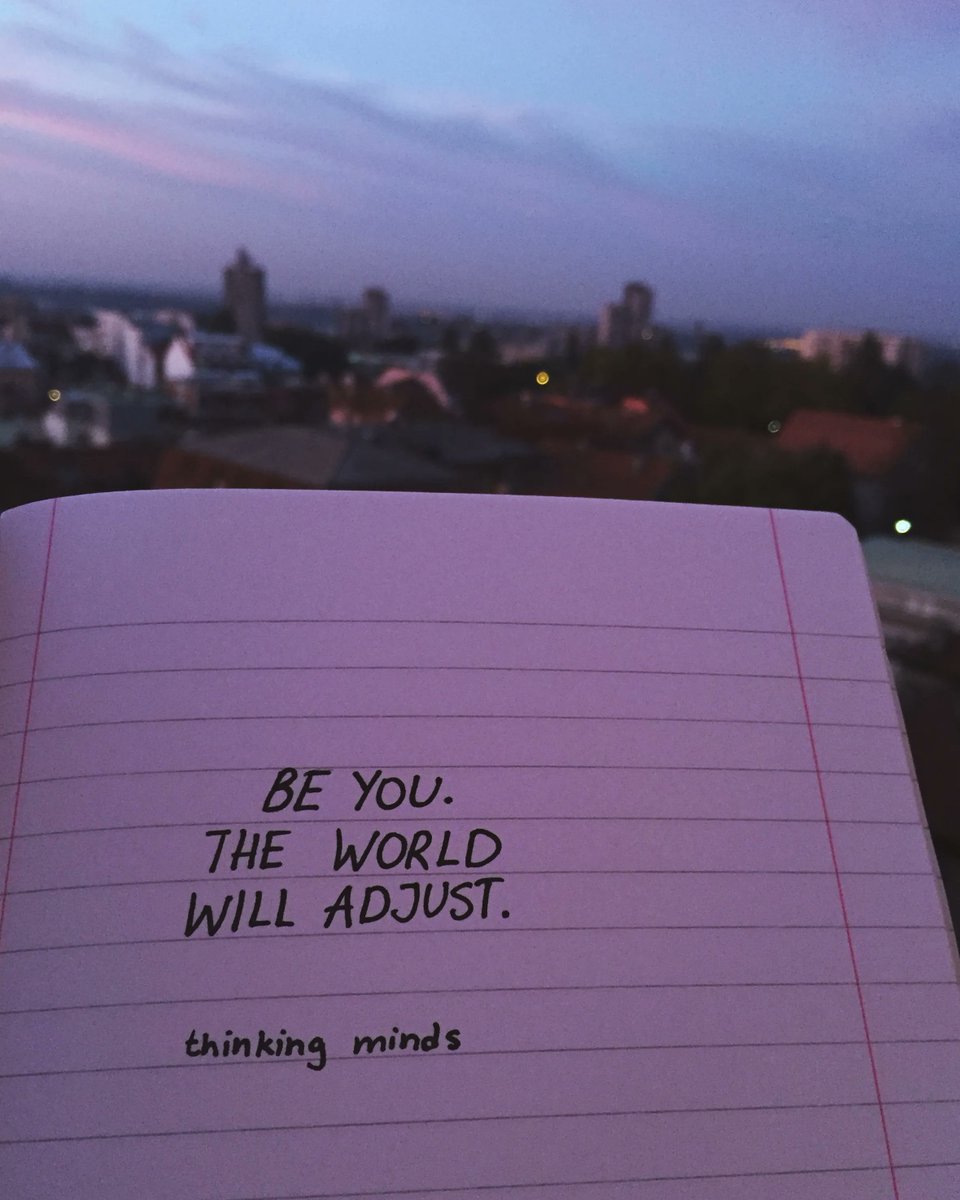 BE YOU.
THE WORLD
WILL ADJUST.
thinking minds